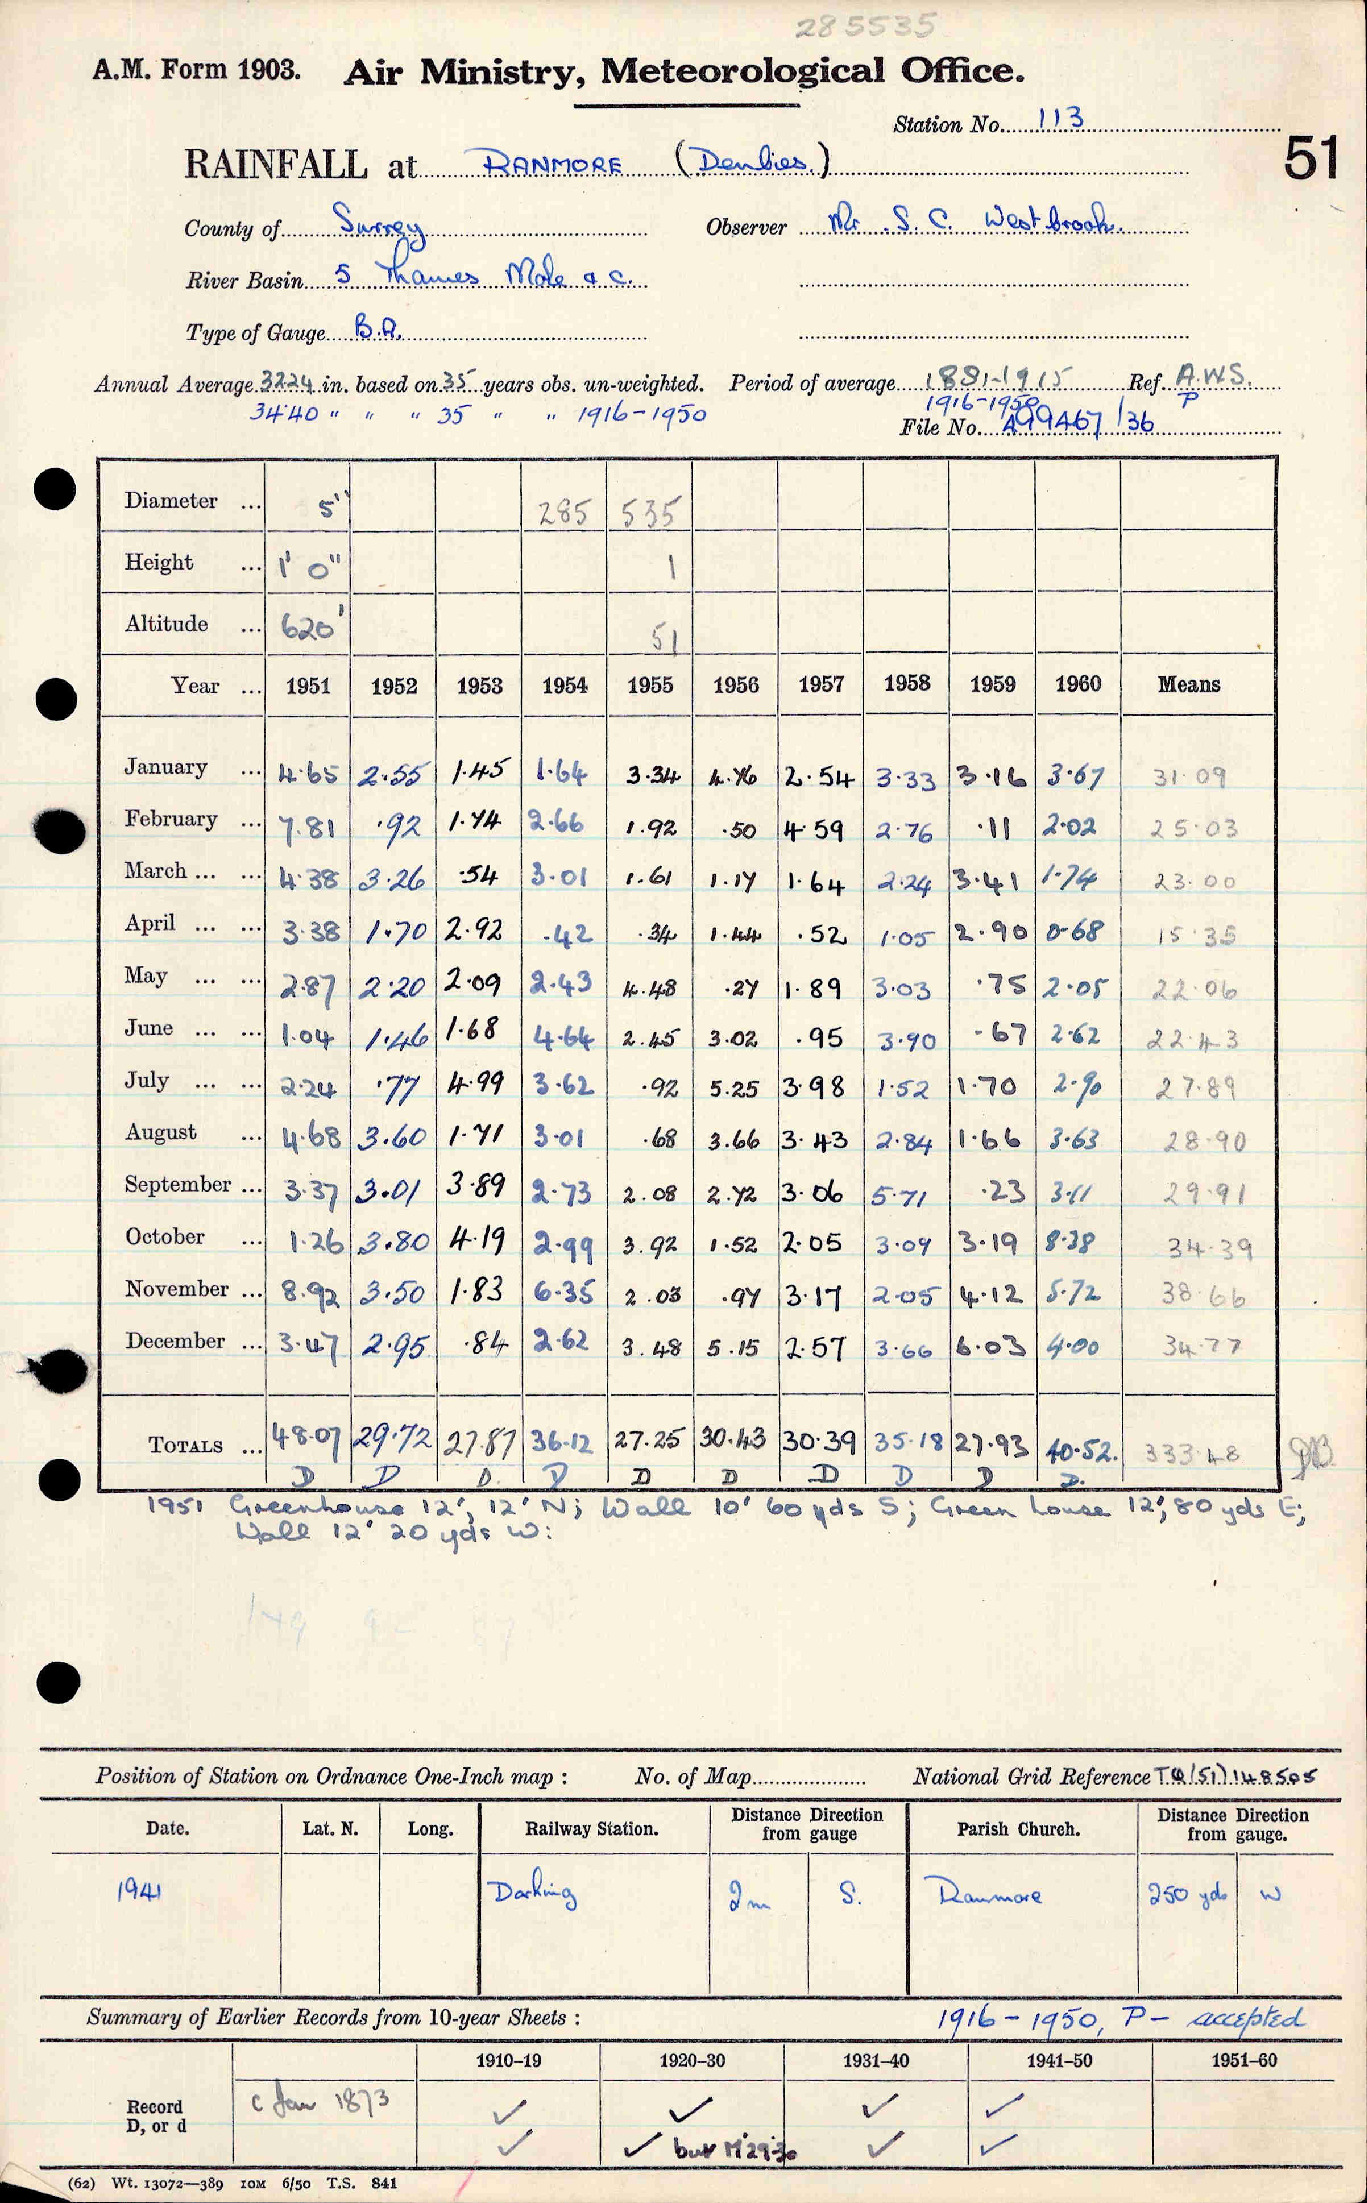 285535
A.M. Form 1903. Air Ministry, Meteorological Office.
Station No. 113
51
RAINFALL at RANMORE (Denbies.)
County of Surrey Observer Mr. S. C. Westbrook.
River Basin 5 Thames Mole & C.
Type of Gauge B.R.
Annual Average 32.24 in. based on 35 years obs. un-weighted. Period of average 1881-1915 Ref. A.W.S.
34.40 " " " 35 " " 1916-1950 1916-1950 P
File No. A99467/36
Diameter ... 5" 285 535
Height ... 1' 0" 1
Altitude ... 620' 51
Year ... 1951 1952 1953 1954 1955 1956 1957 1958 1959 1960 Means
January ... 4.65 2.55 1.45 1.64 3.34 4.76 2.54 3.33 3.16 3.67 31.09
February ... 7.81 .92 1.74 2.66 1.92 .50 4.59 2.76 .11 2.02 25.03
March ... ... 4.38 3.26 .54 3.01 1.61 1.17 1.64 2.24 3.41 1.74 23.00
April ... ... 3.38 1.70 2.92 .42 .34 1.44 .52 1.05 2.90 0.68 15.35
May ... ... 2.87 2.20 2.09 2.43 4.48 .27 1.89 3.03 .75 2.05 22.06
June ... ... 1.04 1.46 1.68 4.64 2.45 3.02 .95 3.90 .67 2.62 22.43
July ... ... 2.24 .77 4.99 3.62 .92 5.25 3.98 1.52 1.70 2.90 27.89
August ... 4.68 3.60 1.71 3.01 .68 3.66 3.43 2.84 1.66 3.63 28.90
September ... 3.37 3.01 3.89 2.73 2.08 2.72 3.06 5.71 .23 3.11 29.91
October ... 1.26 3.80 4.19 2.99 3.92 1.52 2.05 3.09 3.19 8.38 34.39
November ... 8.92 3.50 1.83 6.35 2.03 .97 3.17 2.05 4.12 5.72 38.66
December ... 3.47 2.95 .84 2.62 3.48 5.15 2.57 3.66 6.03 4.00 34.77
TOTALS ... 48.07 29.72 27.87 36.12 27.25 30.43 30.39 35.18 27.93 40.52. 333.48
D D D. D D D D D D D.
1951 Greenhouse 12', 12' N; Wall 10' 60 yds S; Green house 12', 80 yds E;
Wall 12' 20 yds W:
Position of Station on Ordnance One-Inch map : No. of Map National Grid Reference TQ(51)148505
Date. Lat. N. Long. Railway Station. Distance Direction from gauge Parish Church. Distance Direction from gauge.
1941 Dorking 2m S. Ranmore 250 yds W
Summary of Earlier Records from 10-year Sheets : 1916-1950, P - accepted
1910–19 1920–30 1931–40 1941–50 1951–60
Record D, or d c Jan 1873 ✓ ✓ ✓ ✓
✓ ✓ but M 29-30 ✓ ✓
(62) Wt. 13072—389 10M 6/50 T.S. 841